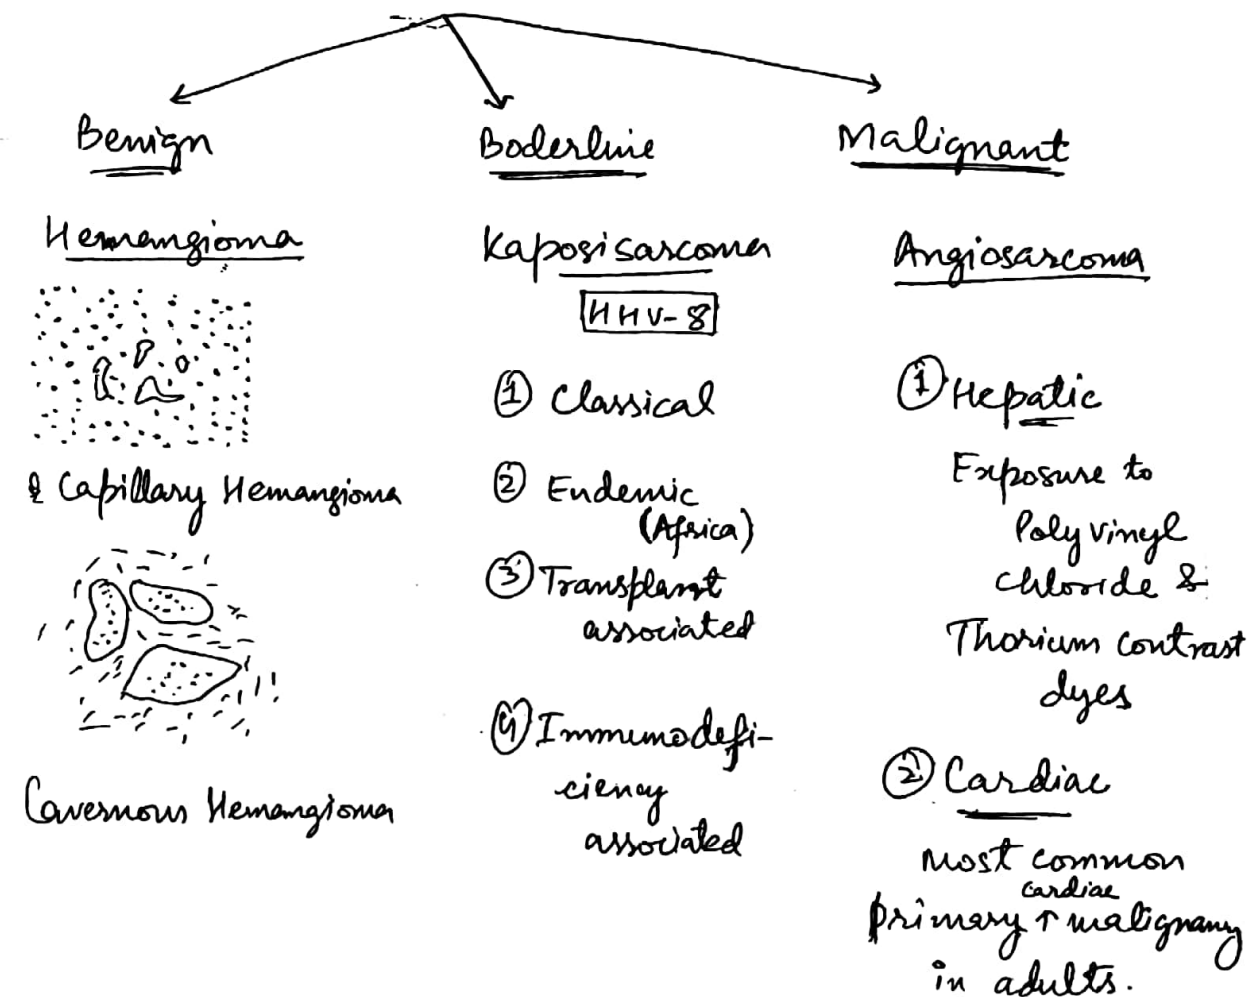 Benign
Boderline
Malignant
Hemangioma
Capillary Hemangioma
Cavernous Hemangioma
Kaposi sarcoma
HHV-8
① Classical
② Endemic
(Africa)
③ Transplant
associated
④ Immunodefi-
ciency
associated
Angiosarcoma
① Hepatic
Exposure to
Poly vinyl
chloride &
Thorium contrast
dyes
② Cardiac
Most common
cardiac
primary ↑ malignancy
in adults.